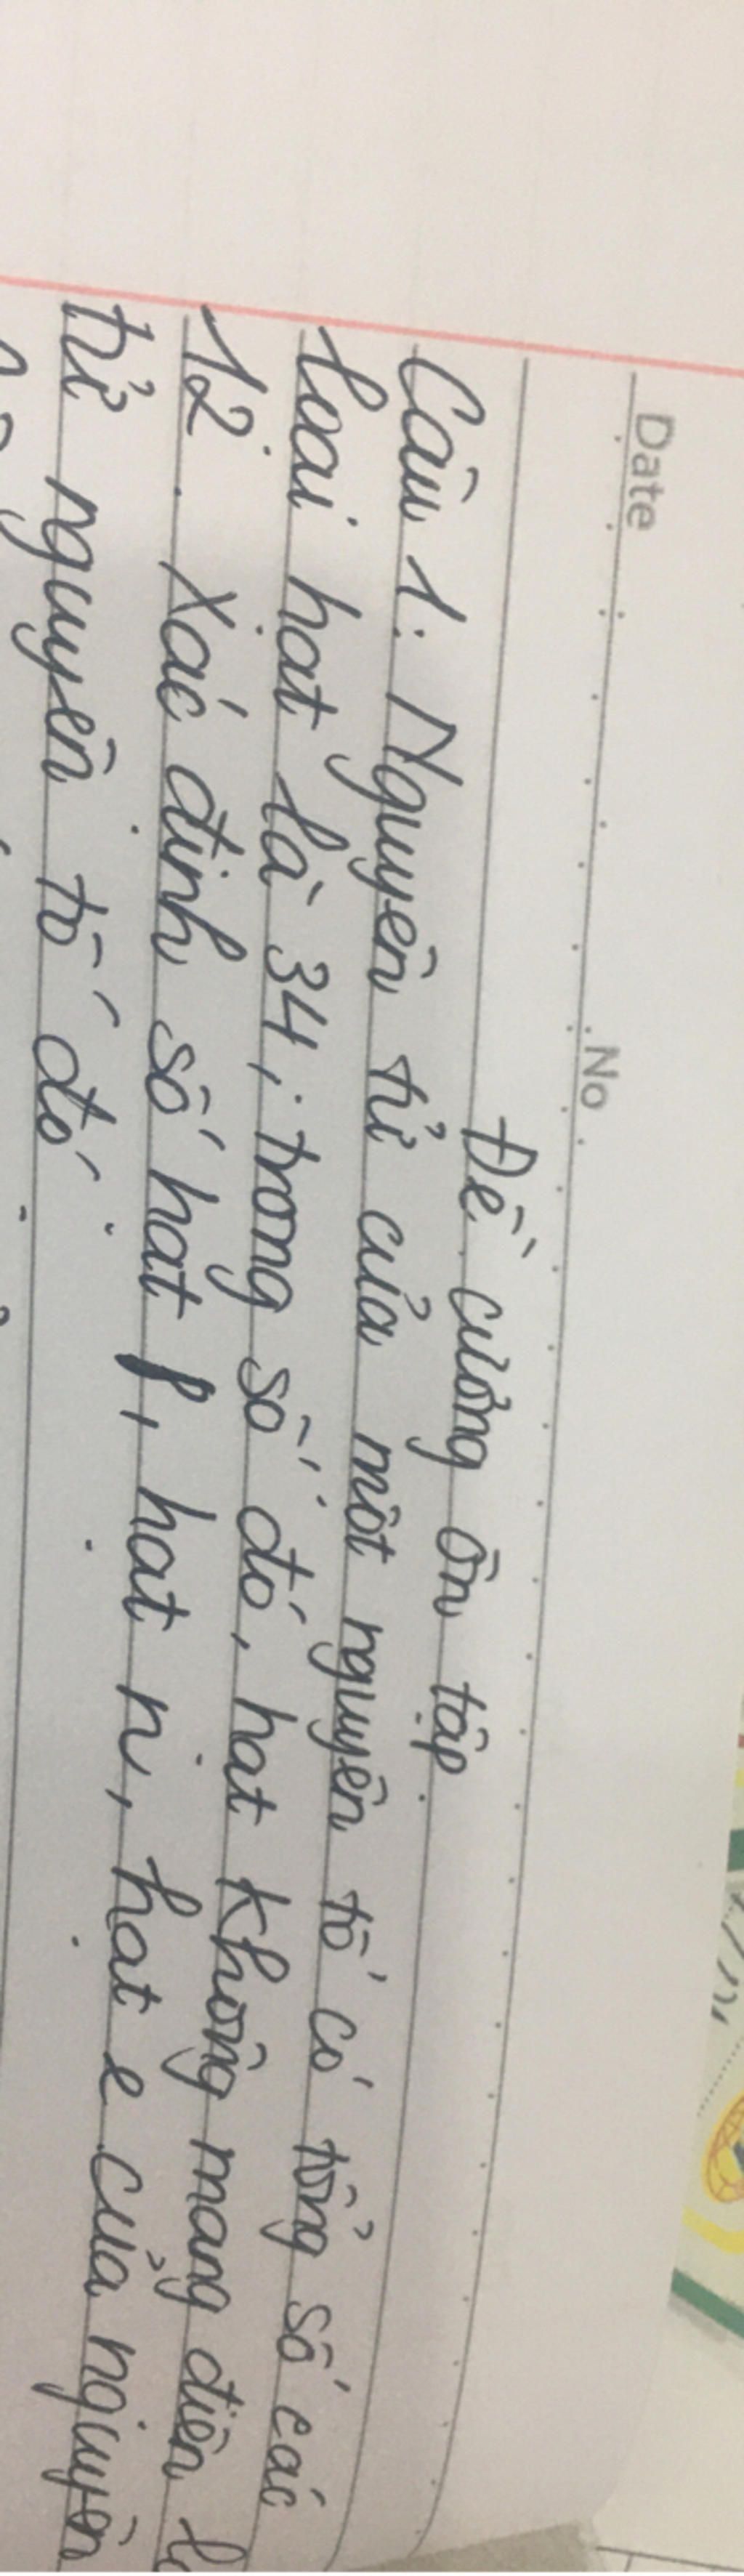 Date No
Đề cương ôn tập
Câu 1: Nguyên tử của một nguyên tố có tổng số các
loại hạt là 34, trong số đó, hạt không mang điện
12. Xác định số hạt p, hạt n, hạt e của nguyên
tử nguyên tố đó